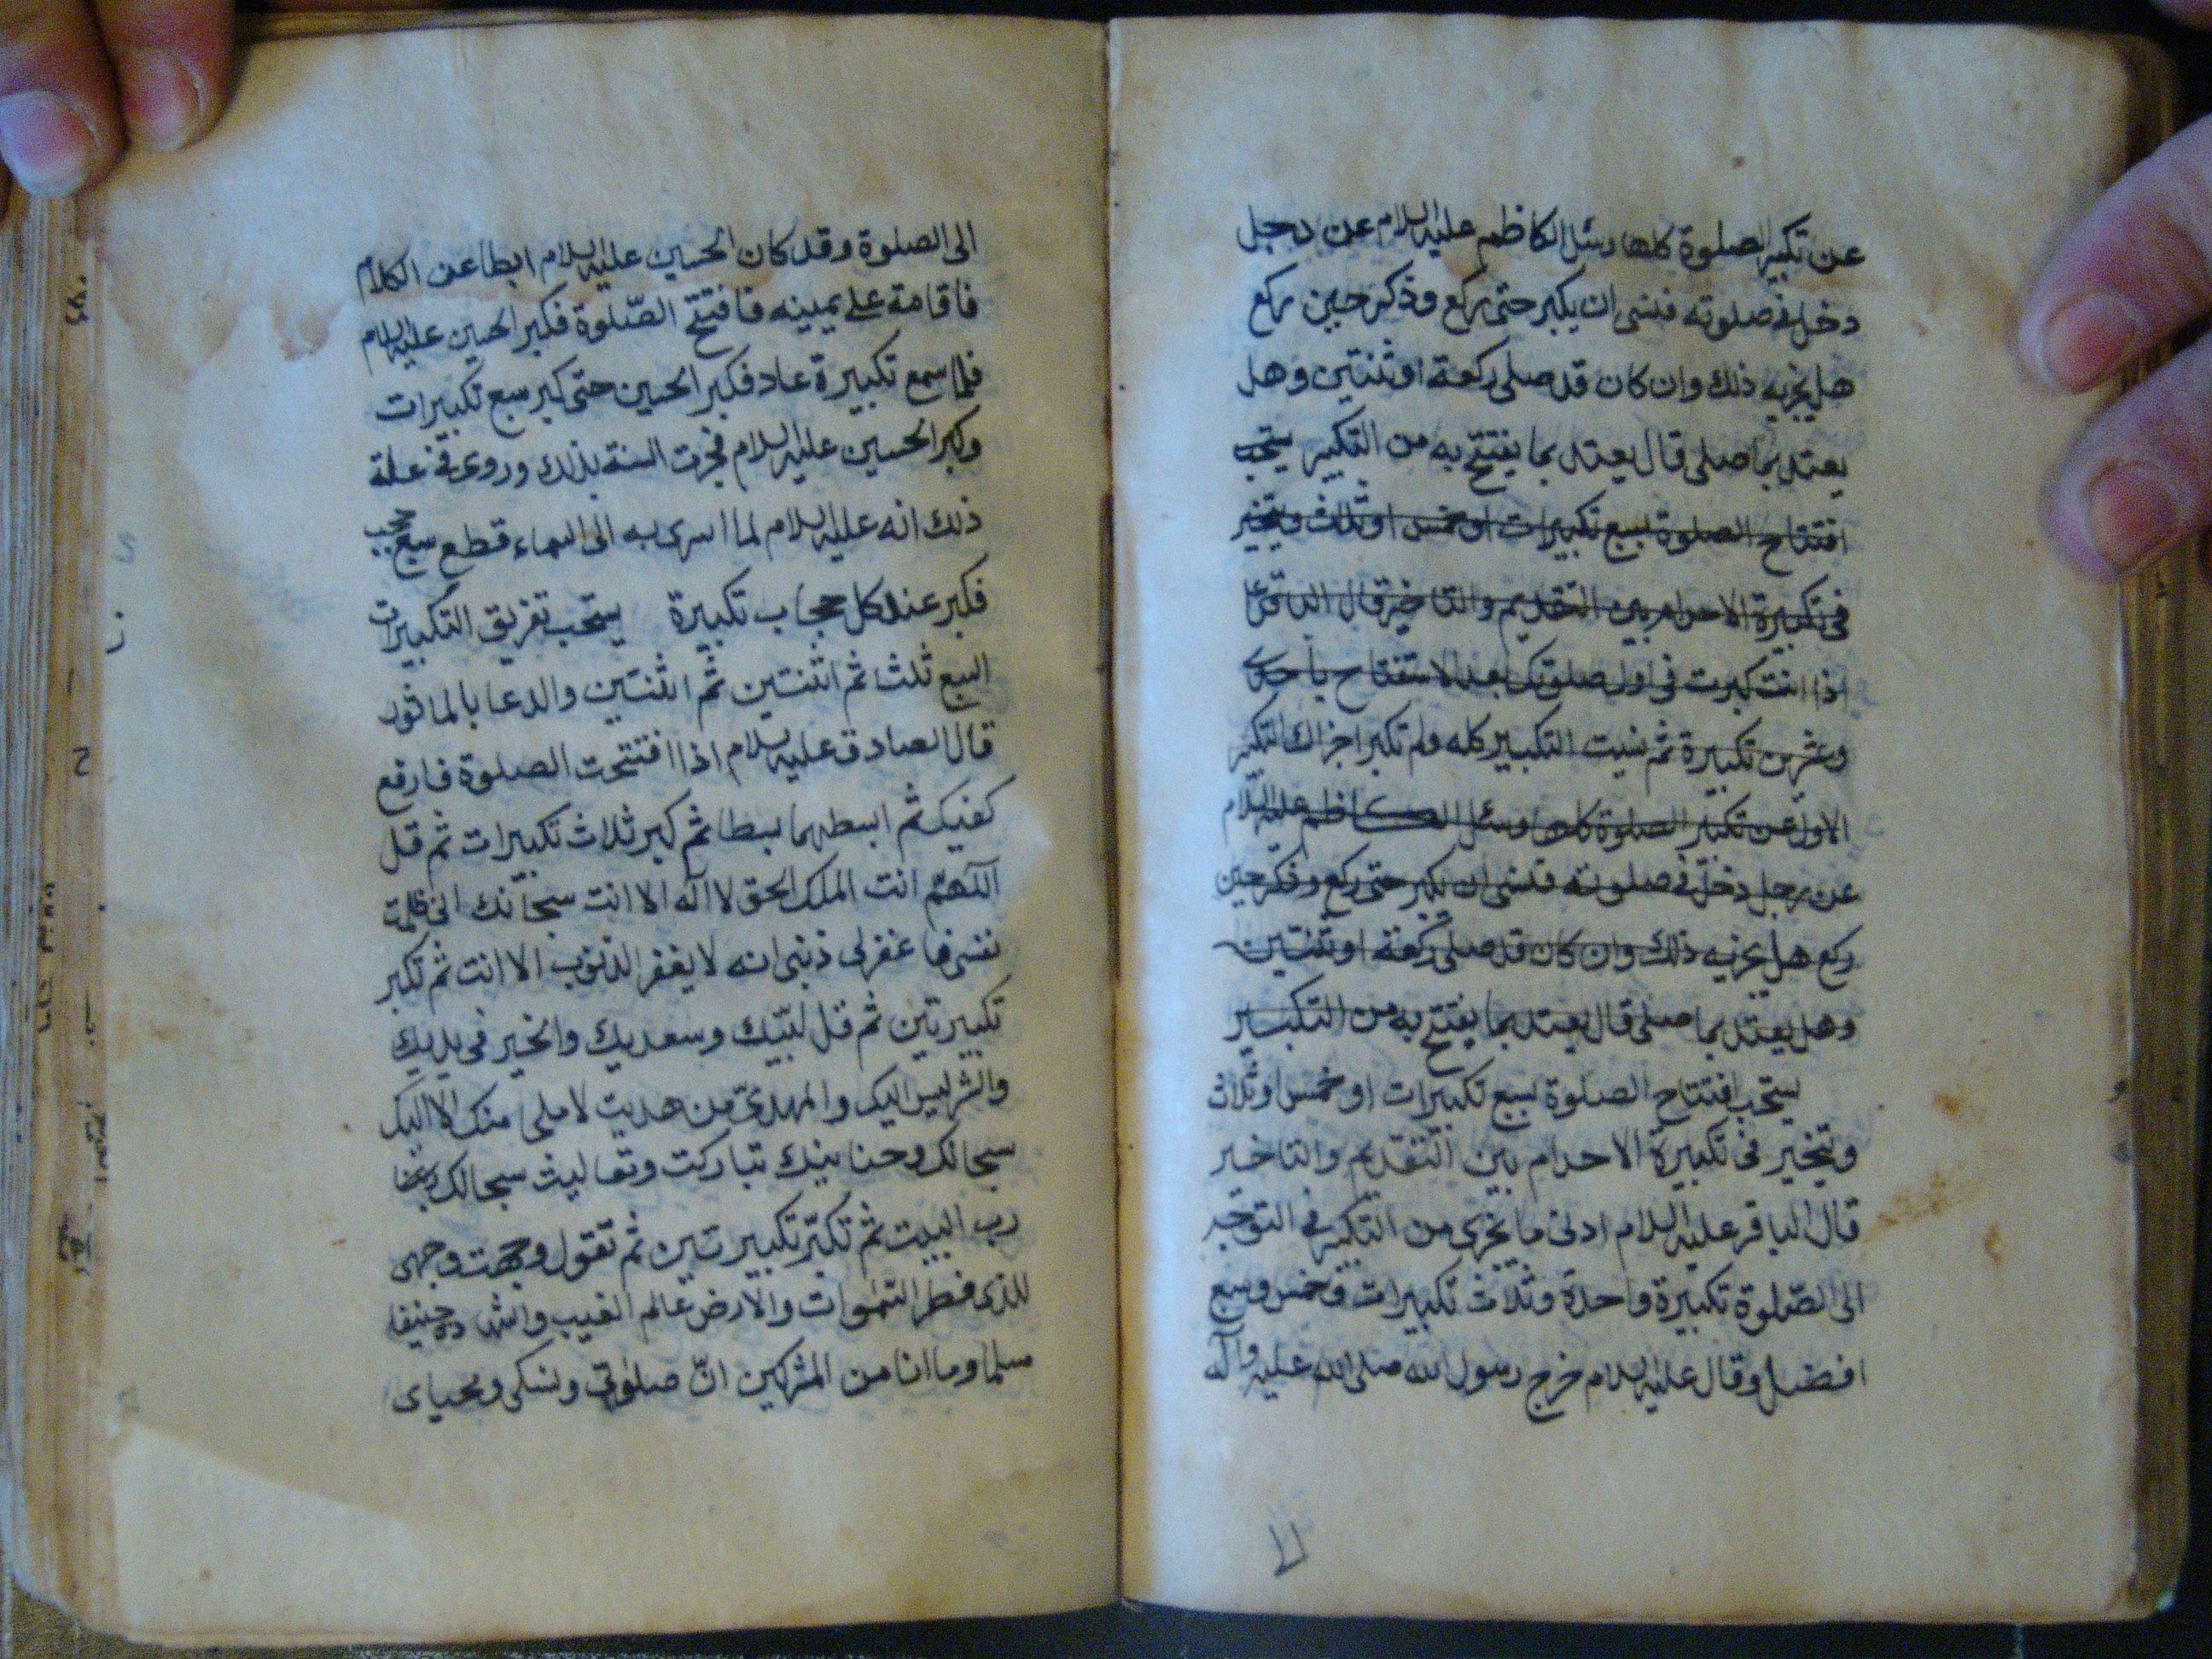 عن تكبير الصلوة كلها وسئل الكاظم عليه السلام عن رجل
دخل في صلوته فنسى ان يكبر حتى ركع وذكر حين ركع
هل يجزيه ذلك وان كان قد صلى ركعة او ثنتين وهل
يعتد بما صلى قال يعتد بما يفتتح به من التكبير يستحب
افتتاح الصلوة بسبع تكبيرات او خمس او ثلاث ويتخير
في تكبيرة الاحرام بين التقديم والتاخير قال الباقر ع
اذا انت كبرت في اول صلوتك بعد الاستفتاح باحدى
وعشرين تكبيرة ثم نسيت التكبير كله ولم تكبر اجزاك التكبير
الاول عن تكبير الصلوة كلها وسئل الكاظم عليه السلام
عن رجل دخل في صلوته فنسى ان يكبر حتى ركع وذكر حين
ركع هل يجزيه ذلك وان كان قد صلى ركعة او ثنتين
وهل يعتد بما صلى قال يعتد بما يفتتح به من التكبير
يستحب افتتاح الصلوة بسبع تكبيرات او خمس او ثلاث
ويتخير في تكبيرة الاحرام بين التقديم والتاخير
قال الباقر عليه السلام ادنى ما يجزى من التكبير في التوجه
الى الصّلوة تكبيرة واحدة وثلاث تكبيرات وخمس وسبع
افضل وقال عليه السلام خرج رسول الله صلى الله عليه وآله
الى الصلوة وقد كان الحسين عليه السلام ابطا عن الكلام
فاقامة على يمينه فافتتح الصّلوة فكبر الحسين عليه السلام
فلما سمع تكبيرة عاد فكبر الحسين حتى كبر سبع تكبيرات
وكبر الحسين عليه السلام فجرت السنة بذلك وروى في علة
ذلك انه عليه السلام لما اسرى به الى السماء قطع سبع حجب
فكبر عند كل حجاب تكبيرة يستحب تفريق التكبيرات
السبع ثلث ثم اثنتين ثم اثنتين والدعا بالماثور
قال الصادق عليه السلام اذا افتتحت الصلوة فارفع
كفيك ثم ابسطهما بسطا ثم كبر ثلاث تكبيرات ثم قل
اللهم انت الملك الحق لا اله الا انت سبحانك انى ظلمت
نفسى فاغفرلى ذنبى انه لا يغفر الذنوب الا انت ثم تكبر
تكبيرتين ثم قل لبّيك وسعديك والخير في يديك
والشر ليس اليك والمهدىّ من هديت لا ملجى منك الا اليك
سبحانك وحنانيك تباركت وتعاليت سبحانك
رب البيت ثم تكبّر تكبيرتين ثم تقول وجهت وجهى
للذى فطر السّموات والارض عالم الغيب والشهادة حنيفا
مسلما وما انا من المشركين انّ صلوتى ونسكى ومحياى